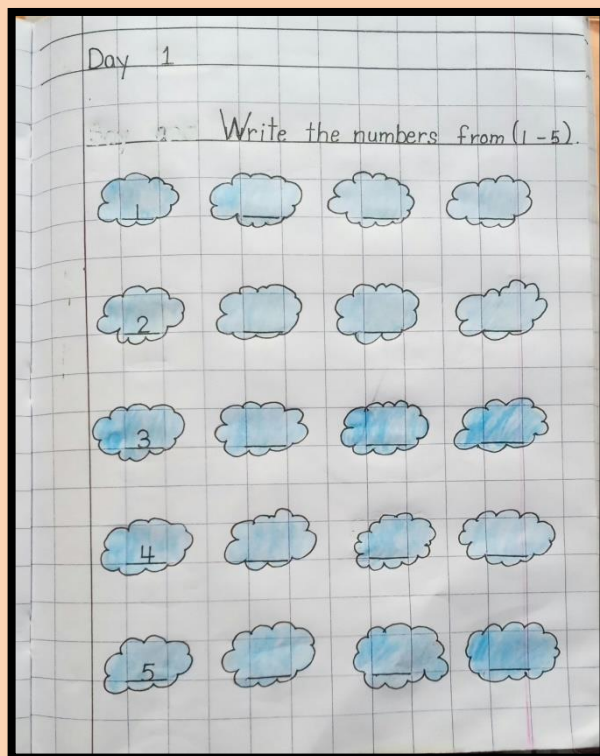 Day 1
Write the numbers from (1-5).
1
2
3
4
5